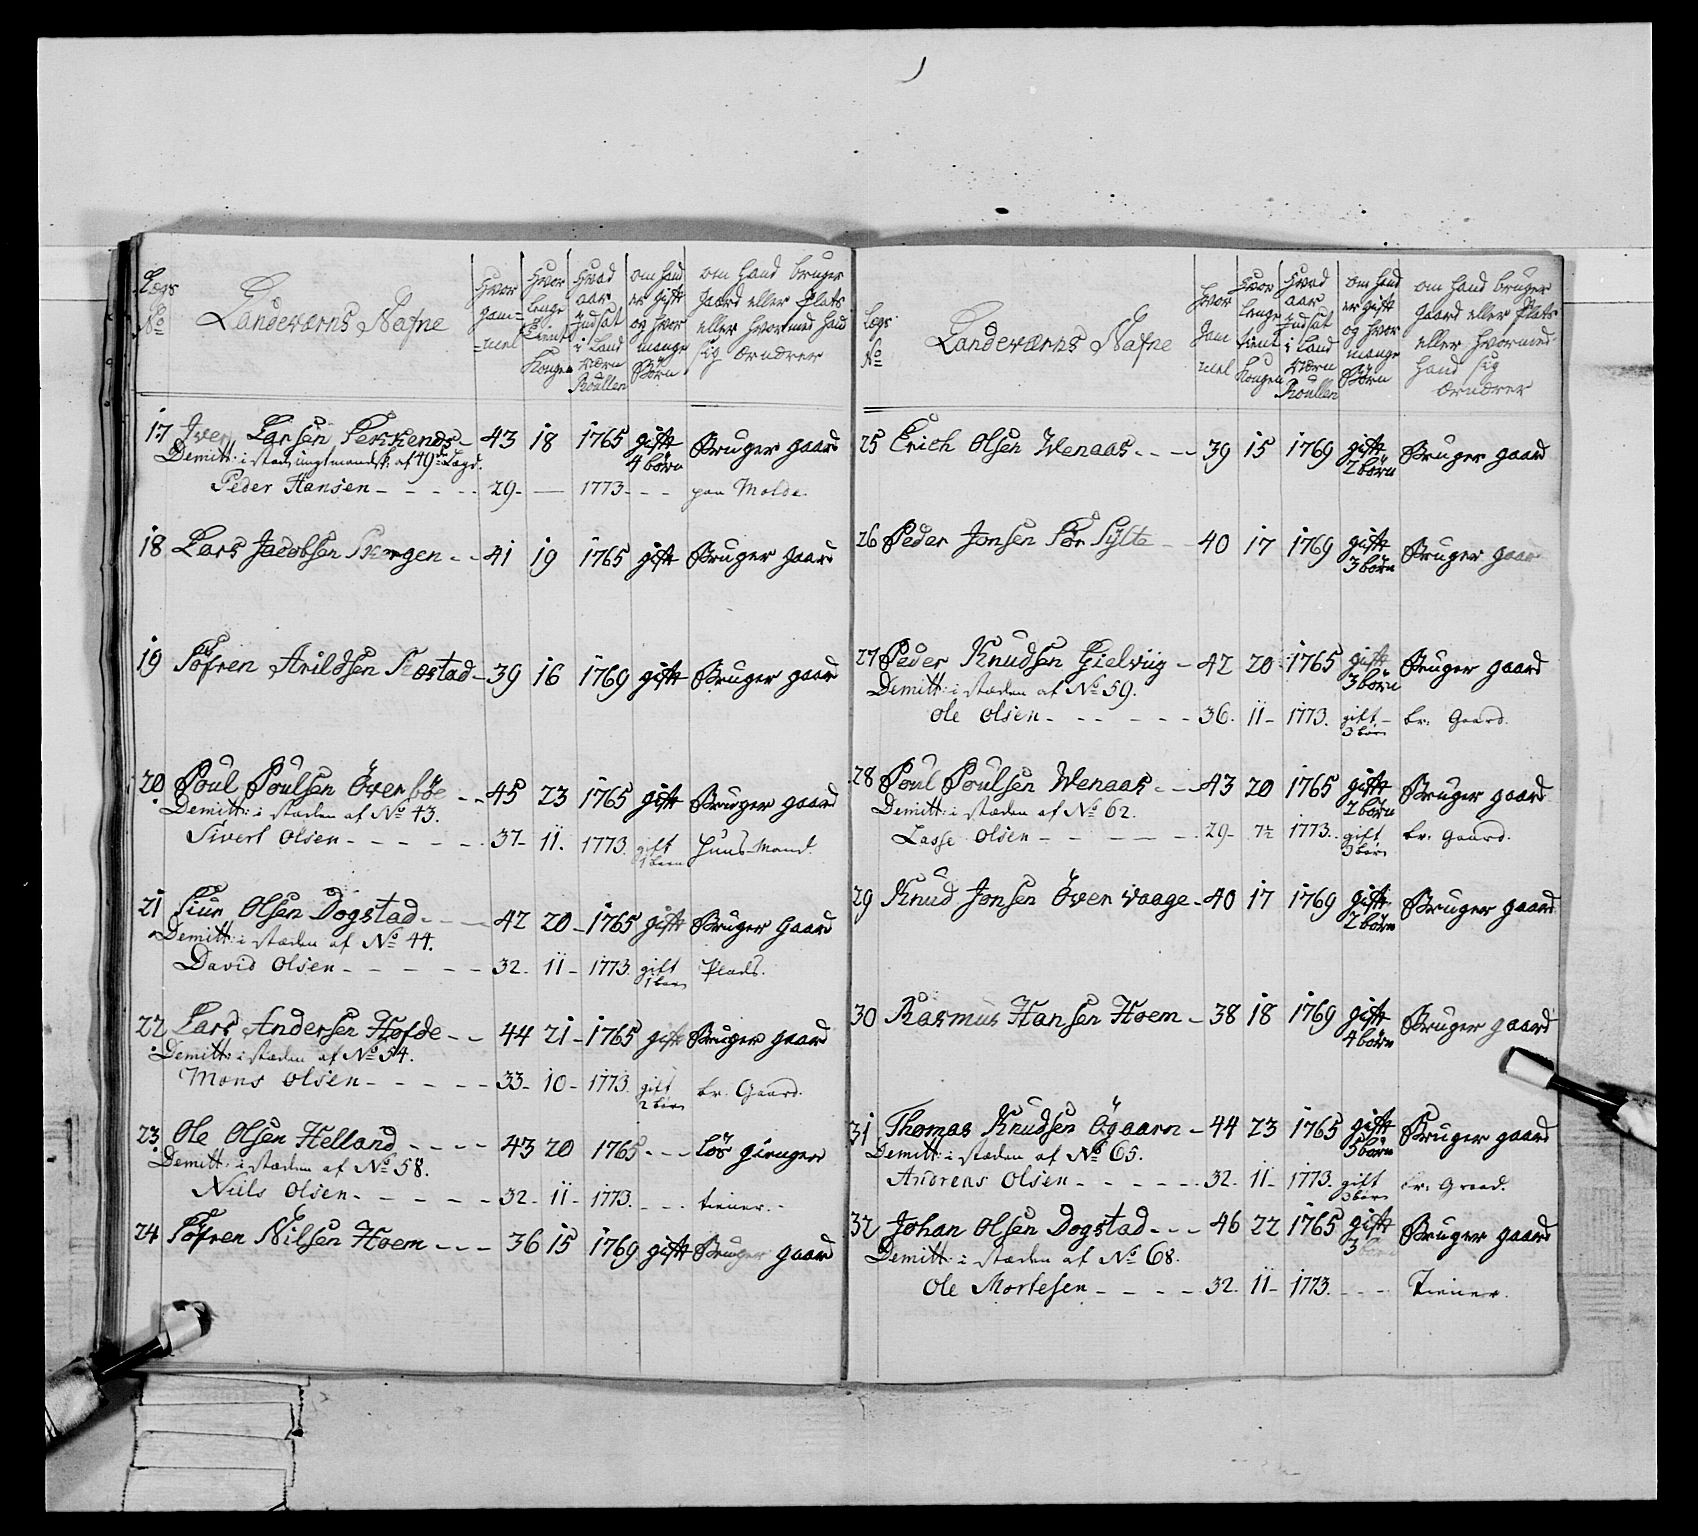 Lægs No
Landeværns Nafne
Hvor gam=mel
Hvor lenge tient Kongen
Hvad aar indsat i Land værn Roullen
om hand er gift og hvor mange Börn
om hand bruger Gaard eller Plats eller hvormed hand sig ærnærer
17 Iver Larsen 43 18 1765 gift 4 börn Bruger gaard
Demitt: i stæd ungtmandsk. af 49de Lægd.
Peder Hansen - - - - 29 - — 1773 - - - paa Molde.
18 Lars Jacobsen - - 41 19 1765 gift Bruger gaard
19 Söfren Arildsen - 39 16 1769 gift Bruger gaard
20 Poul Poulsen Överböe - - 45 23 1765 gift Bruger gaard
Demitt: i stæden af No 43.
Sivert Olsen - - - - - 37 - 11. 1773. gift 1 barn Huus-Mand.
21 Siur Olsen Dogstad - - - 42 20 - 1765 gift Bruger Gaard
Demitt: i stæden af No 44.
David Olsen - - - - - 32 - 11 - 1773. gift 1 barn Plads.
22 Lars Andersen Hofde - - 44 21 - 1765 gift Bruger gaard
Demitt: i stæden af No 54.
Mons Olsen - - - - - 33 - 10 - 1773. gift 2 börn br: Gaard.
23 Ole Olsen Helland - - - - 43 20 1765 - - - Lös gienger
Demitt: i stæden af No 58.
Niels Olsen - - - - - 32 - 11 - 1773. - - - tiener. -
24 Söfren Nilsen Hoem - - - 36 15 1769 gift Bruger gaard
Lægs No
Landeværns Nafne
Hvor Gam mel
Hvor lenge tient Kongen
Hvad aar indsat i Land værn Roullen
om hand er gift og hvor mange Börn
om hand bruger Gaard eller Plats eller hvormed hand sig ærnærer
25 Erich Olsen Wenaas - - - 39 15 1769 gift 2 börn Bruger gaard
26 Peder Jonsen Sylte - 40 17 1769 gift 3 börn Bruger gaard
27 Peder Knudsen Gielviig - 42 20 1765 gift 3 börn Bruger gaard
Demitt: i stæden af No 59.
Ole Olsen - - - - - 36. 11 - 1773. gift - 3 börn br: Gaard.
28 Poul Poulsen Wenaas - - 43 20 1765 gift 2 börn Bruger gaard
Demitt: i stæden af No 62.
Lasse Olsen - - - - - 29 - 7½ 1773. gift 3 börn br: Gaard.
29 Knud Jonsen Över vaage - 40 17 1769 gift 2 börn Bruger gaard
30 Rasmus Hansen Hoem - 38 18 1769 gift 4 börn Bruger gaard
31 Thomas Knudsen Ögaarn - 44 23 1765 gift 5 börn Bruger gaard
Demitt: i stæden af No 65.
Andreas Olsen - - - - - 32. 11 - 1773. gift 3 börn br: Graad.
32 Johan Olsen Dogstad - - - 46 22 1765 gift 3 börn Bruger gaard
Demitt: i stæden af No 68.
Ole Mortesen - - - - 32. 11 - 1773. - - - Tiener.